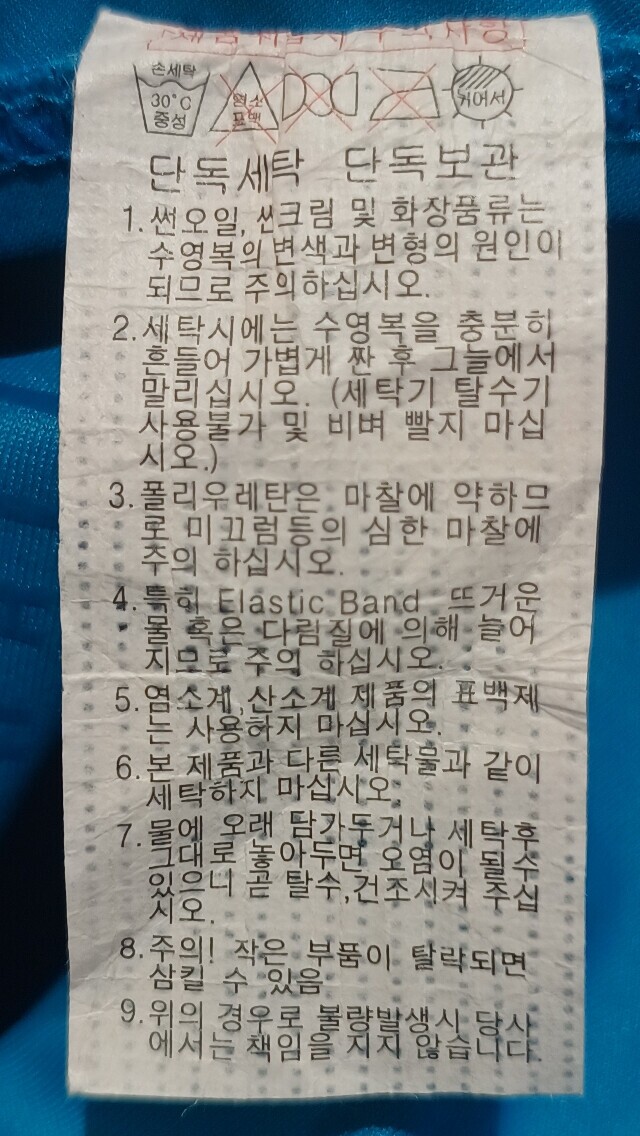 손세탁
30°C
중성
염소
표백
뉘어서
단독세탁 단독보관
1. 썬오일, 썬크림 및 화장품류는
수영복의 변색과 변형의 원인이
되므로 주의하십시오.
2. 세탁시에는 수영복을 충분히
흔들어 가볍게 짠 후 그늘에서
말리십시오. (세탁기 탈수기
사용불가 및 비벼 빨지 마십
시오.)
3. 폴리우레탄은 마찰에 약하므
로 미끄럼등의 심한 마찰에
주의 하십시오.
4. 특히 Elastic Band 뜨거운
물 혹은 다림질에 의해 늘어
지므로 주의 하십시오.
5. 염소계, 산소계 제품의 표백제
는 사용하지 마십시오.
6. 본 제품과 다른 세탁물과 같이
세탁하지 마십시오.
7. 물에 오래 담가두거나 세탁후
그대로 놓아두면 오염이 될수
있으니 곧 탈수,건조시켜 주십
시오.
8. 주의! 작은 부품이 탈락되면
삼킬 수 있음
9. 위의 경우로 불량발생시 당사
에서는 책임을 지지 않습니다.